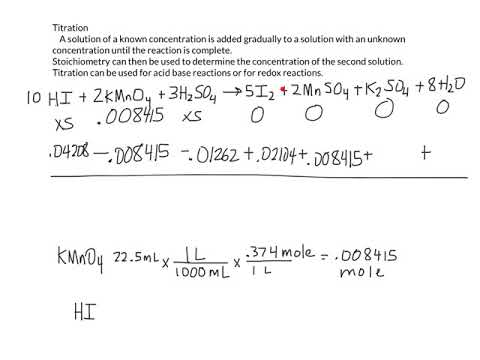 Titration
A solution of a known concentration is added gradually to a solution with an unknown
concentration until the reaction is complete.
Stoichiometry can then be used to determine the concentration of the second solution.
Titration can be used for acid base reactions or for redox reactions.
10 HI + 2KMnO4 + 3H2SO4 → 5I2 + 2MnSO4 + K2SO4 + 8H2O
xs .008415 xs 0 0 0 0
.04208 - .008415 - .01262 + .02104 + .008415 + +
KMnO4 22.5mL x 1L / 1000 mL x .374 mole / 1 L = .008415 mole
HI